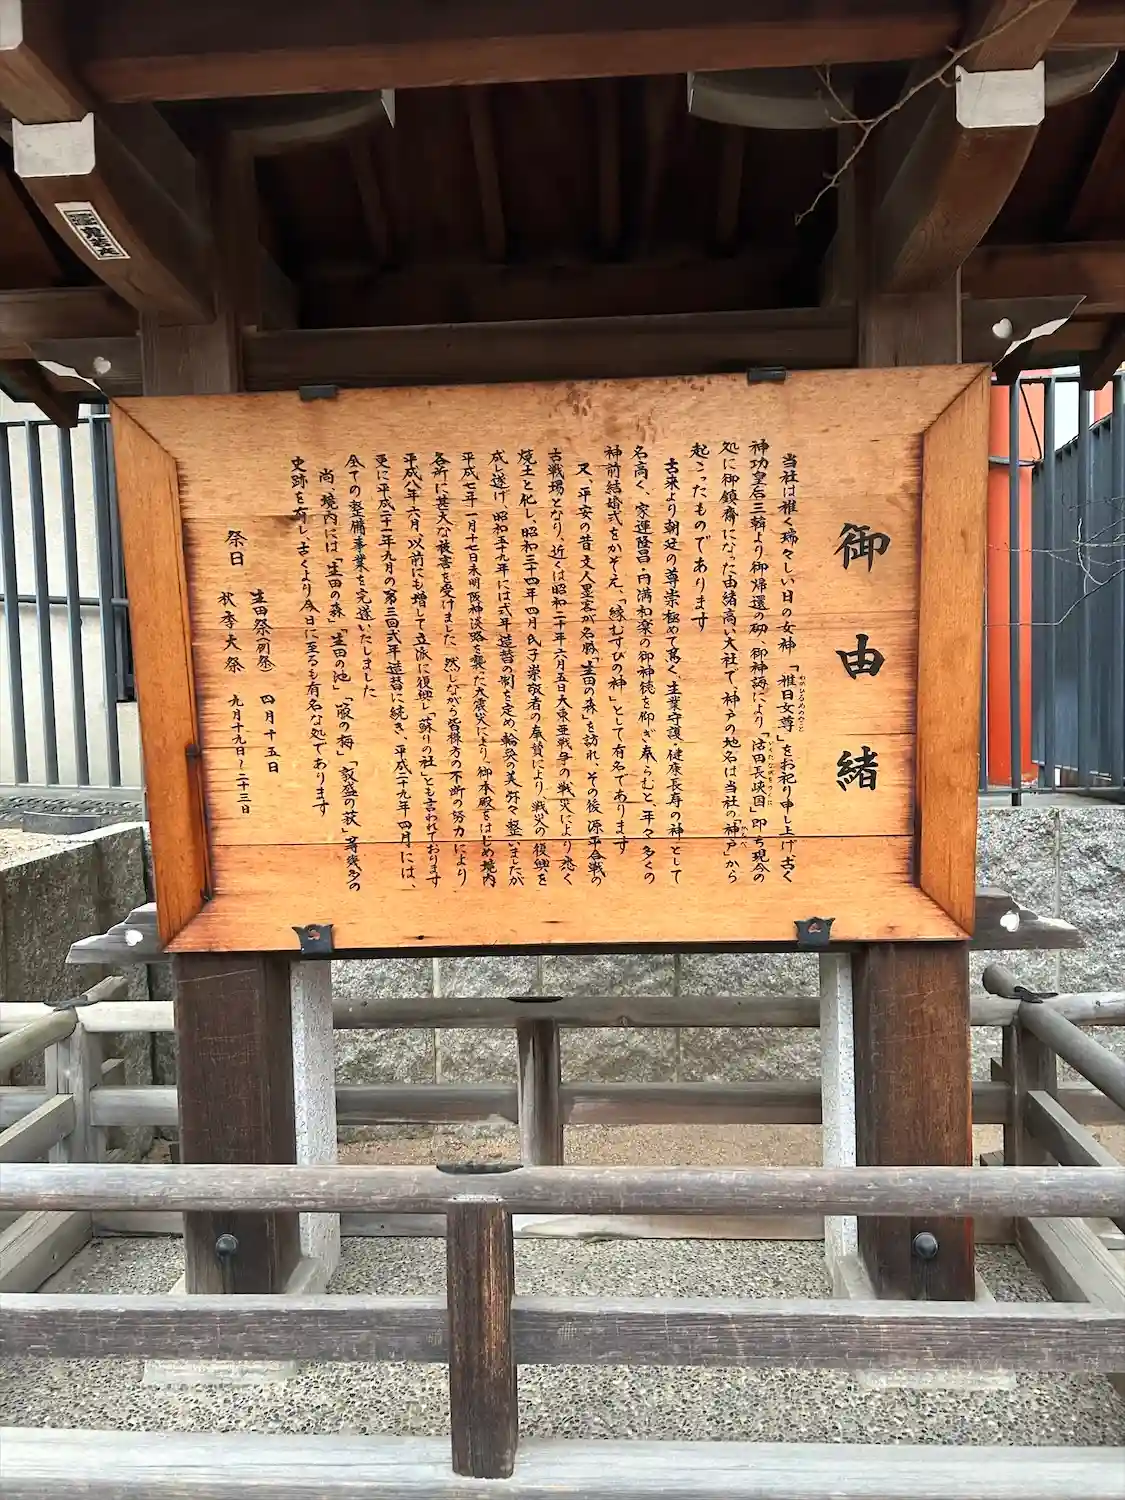 御由緒
当社は稚く瑞々しい日の女神「稚日女尊」をお祀り申し上げ古く
わかひるめのみこと
神功皇后三韓より御帰還の砌、御神誨により「活田長峡国」即ち現今の
いくたながをのくに
処に御鎮斎になった由緒高い大社で、神戸の地名は当社の「神戸」から
かんべ
起こったものであります
古来より朝廷の尊崇極めて篤く、生業守護・健康長寿の神として
名高く、家運隆昌・円満和楽の御神徳を仰ぎ奉らむと年々多くの
神前結婚式をかぞえ、「縁むすびの神」として有名であります
又、平安の昔文人墨客が名勝「生田の森」を訪れ、その後源平合戦の
古戦場となり、近くは昭和二十年六月五日大東亜戦争の戦災により悉く
焼土と化し、昭和三十四年四月氏子崇敬者の奉賛により、戦災の復興を
成し遂げ昭和五十九年には式年造替の制を定め輪奐の美弥々整いましたが
平成七年一月十七日未明阪神淡路を襲った大震災により、御本殿をはじめ境内
各所に甚大な被害を受けました 然しながら皆様方の不断の努力により
平成八年六月以前にも増して立派に復興し「蘇りの社」とも言われております
更に平成二十一年九月の第三回式年造替に続き、平成二十九年四月には、
全ての整備事業を完遂いたしました
尚、境内には「生田の森」「生田の池」「箙の梅」「敦盛の萩」等幾多の
史跡を有し、古くより今日に至るも有名な処であります
祭日 生田祭(例祭) 四月十五日
秋季大祭 九月十九日~二十三日